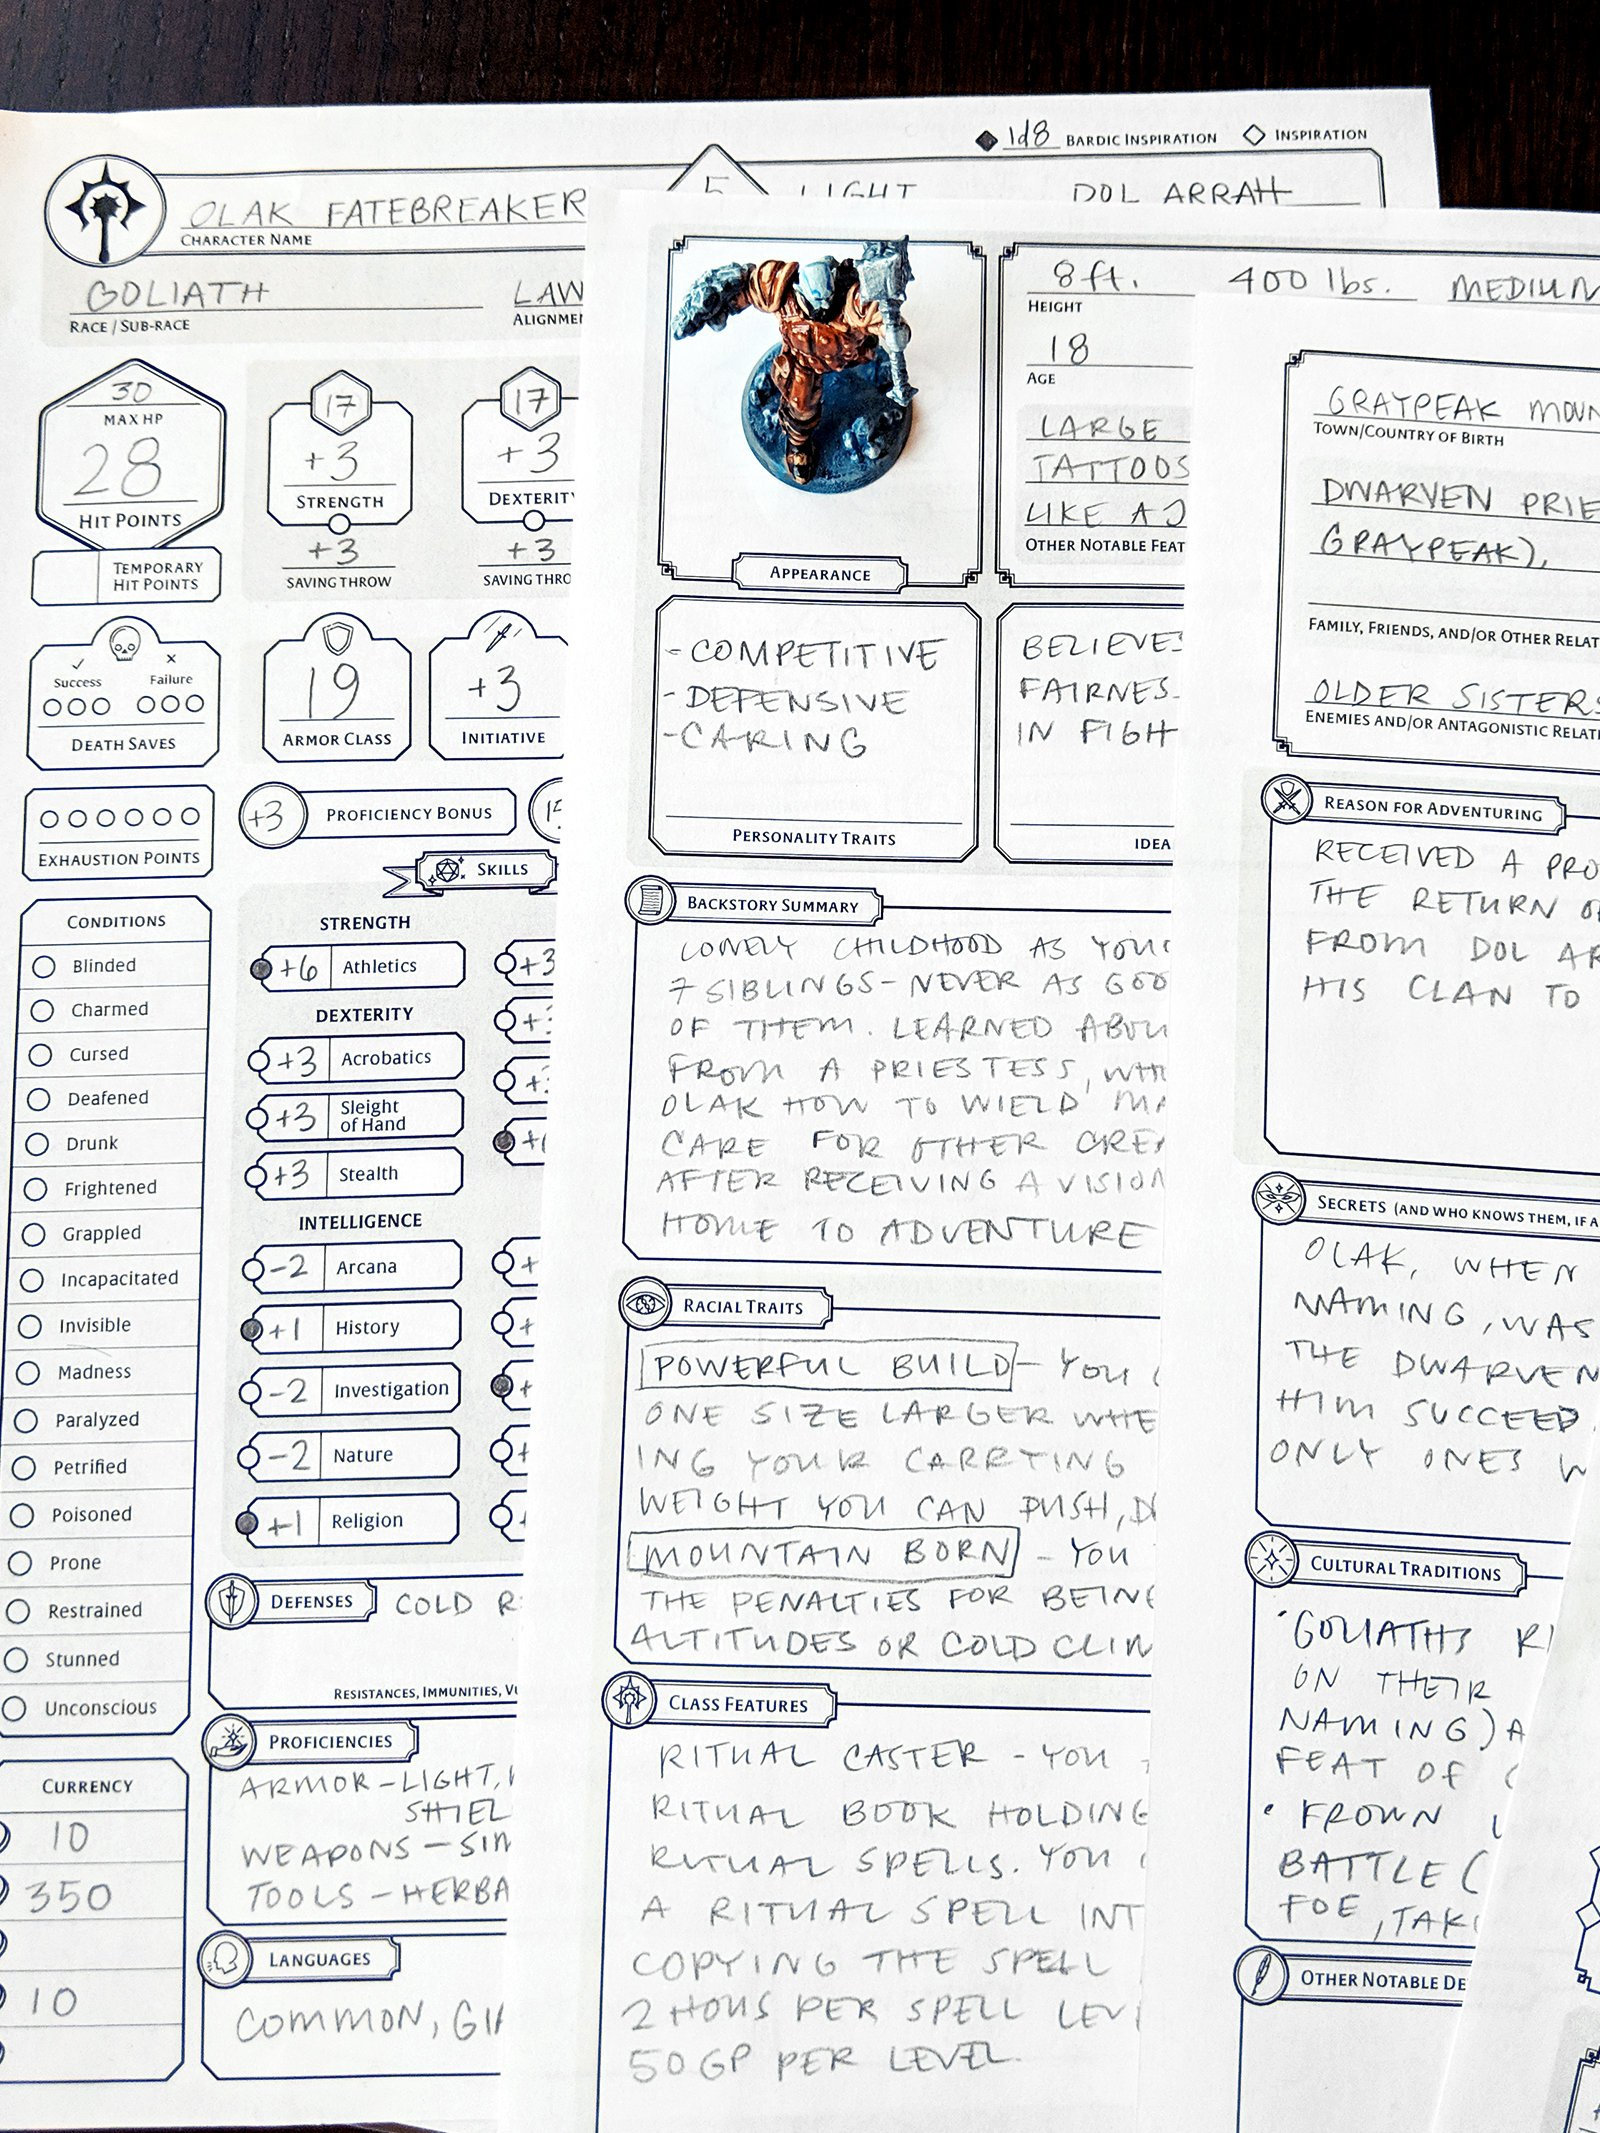 1d8 BARDIC INSPIRATION INSPIRATION
OLAK FATEBREAKER
CHARACTER NAME
5 LIGHT DOL ARRAH
GOLIATH
RACE / SUB-RACE
LAW
ALIGNME
30
MAX HP
28
HIT POINTS
TEMPORARY
HIT POINTS
17
+3
STRENGTH
+3
SAVING THROW
17
+3
DEXTERIT
+3
SAVING THRO
Success Failure
DEATH SAVES
19
ARMOR CLASS
+3
INITIATIVE
EXHAUSTION POINTS
+3 PROFICIENCY BONUS
SKILLS
CONDITIONS
Blinded
Charmed
Cursed
Deafened
Drunk
Frightened
Grappled
Incapacitated
Invisible
Madness
Paralyzed
Petrified
Poisoned
Prone
Restrained
Stunned
Unconscious
STRENGTH
+6 Athletics
DEXTERITY
+3 Acrobatics
+3 Sleight
of Hand
+3 Stealth
INTELLIGENCE
-2 Arcana
+1 History
-2 Investigation
-2 Nature
+1 Religion
+3
DEFENSES COLD R
RESISTANCES, IMMUNITIES, VU
PROFICIENCIES
ARMOR-LIGHT,
SHIEL
WEAPONS-SIM
TOOLS-HERBA
LANGUAGES
COMMON, GI
CURRENCY
10
350
10
APPEARANCE
8ft. 400 lbs. MEDIUM
HEIGHT
18
AGE
LARGE
TATTOOS
LIKE A J
OTHER NOTABLE FEAT
-COMPETITIVE
-DEFENSIVE
-CARING
PERSONALITY TRAITS
BELIEVES
FAIRNES
IN FIGH
IDEA
BACKSTORY SUMMARY
LONELY CHILDHOOD AS YOU
7 SIBLINGS-NEVER AS GOO
OF THEM. LEARNED ABOU
FROM A PRIESTESS, WH
OLAK HOW TO WIELD MA
CARE FOR OTHER CREA
AFTER RECEIVING A VISION
HOME TO ADVENTURE
RACIAL TRAITS
POWERFUL BUILD- YOU
ONE SIZE LARGER WHE
ING YOUR CARRYING
WEIGHT YOU CAN PUSH, D
MOUNTAIN BORN - YOU
THE PENALTIES FOR BEING
ALTITUDES OR COLD CLIM
CLASS FEATURES
RITUAL CASTER - YOU
RITUAL BOOK HOLDING
RITUAL SPELLS. YOU
A RITUAL SPELL INT
COPYING THE SPELL
2 HOUS PER SPELL LEV
50GP PER LEVEL.
GRAYPEAK MOUN
TOWN/COUNTRY OF BIRTH
DWARVEN PRIE
GRAYPEAK),
FAMILY, FRIENDS, AND/OR OTHER RELAT
OLDER SISTERS
ENEMIES AND/OR ANTAGONISTIC RELATI
REASON FOR ADVENTURING
RECEIVED A PRO
THE RETURN OF
FROM DOL AR
HIS CLAN TO
SECRETS (AND WHO KNOWS THEM, IF A
OLAK, WHEN
NAMING, WAS
THE DWARVEN
HIM SUCCEED.
ONLY ONES W
CULTURAL TRADITIONS
•GOLIATHS
ON THEIR
NAMING) A
FEAT OF
• FROWN U
BATTLE (
FOE, TAKI
OTHER NOTABLE DE